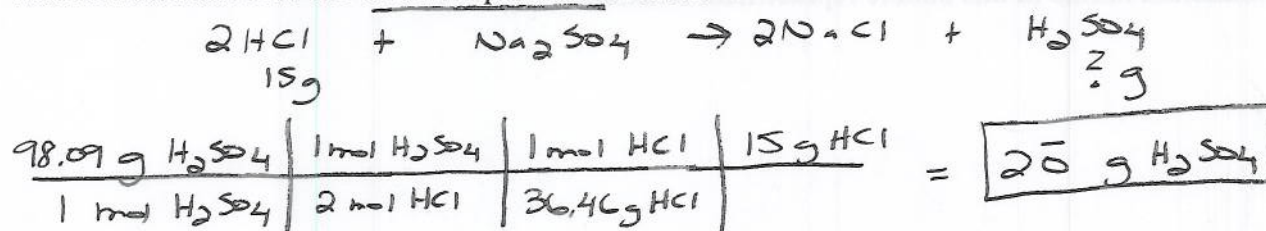 2HCl + Na₂SO₄ → 2NaCl + H₂SO₄
15g ? g
98.09 g H₂SO₄ | 1 mol H₂SO₄ | 1 mol HCl | 15 g HCl = 20̄ g H₂SO₄
1 mol H₂SO₄ | 2 mol HCl | 36.46g HCl